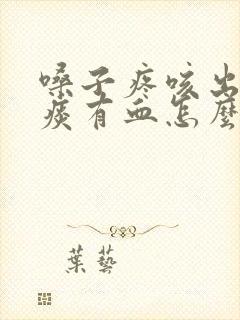 嗓子疼咳出
痰有血怎麼
葉藝